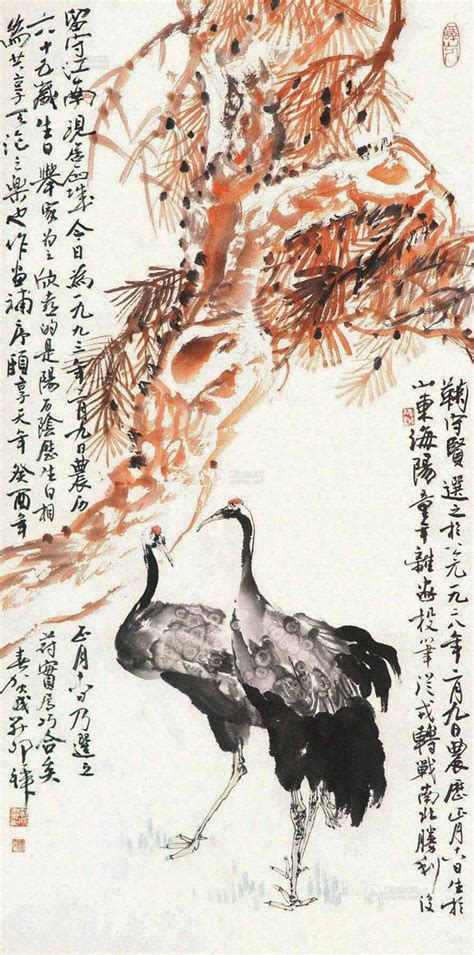 鞠守賢選之於公元一九二八年二月九日農歷正月十八日生於
山東海陽童年投筆從戎轉戰南北勝利後
留守江南現居今日為一九九三年二月九日農历
正月十八日乃選之
六十五歲生日舉家為之欣喜的是陽历陰歷生日相
符實属巧合矣
為共享天倫之樂也作画補序頤享天年癸酉年
春